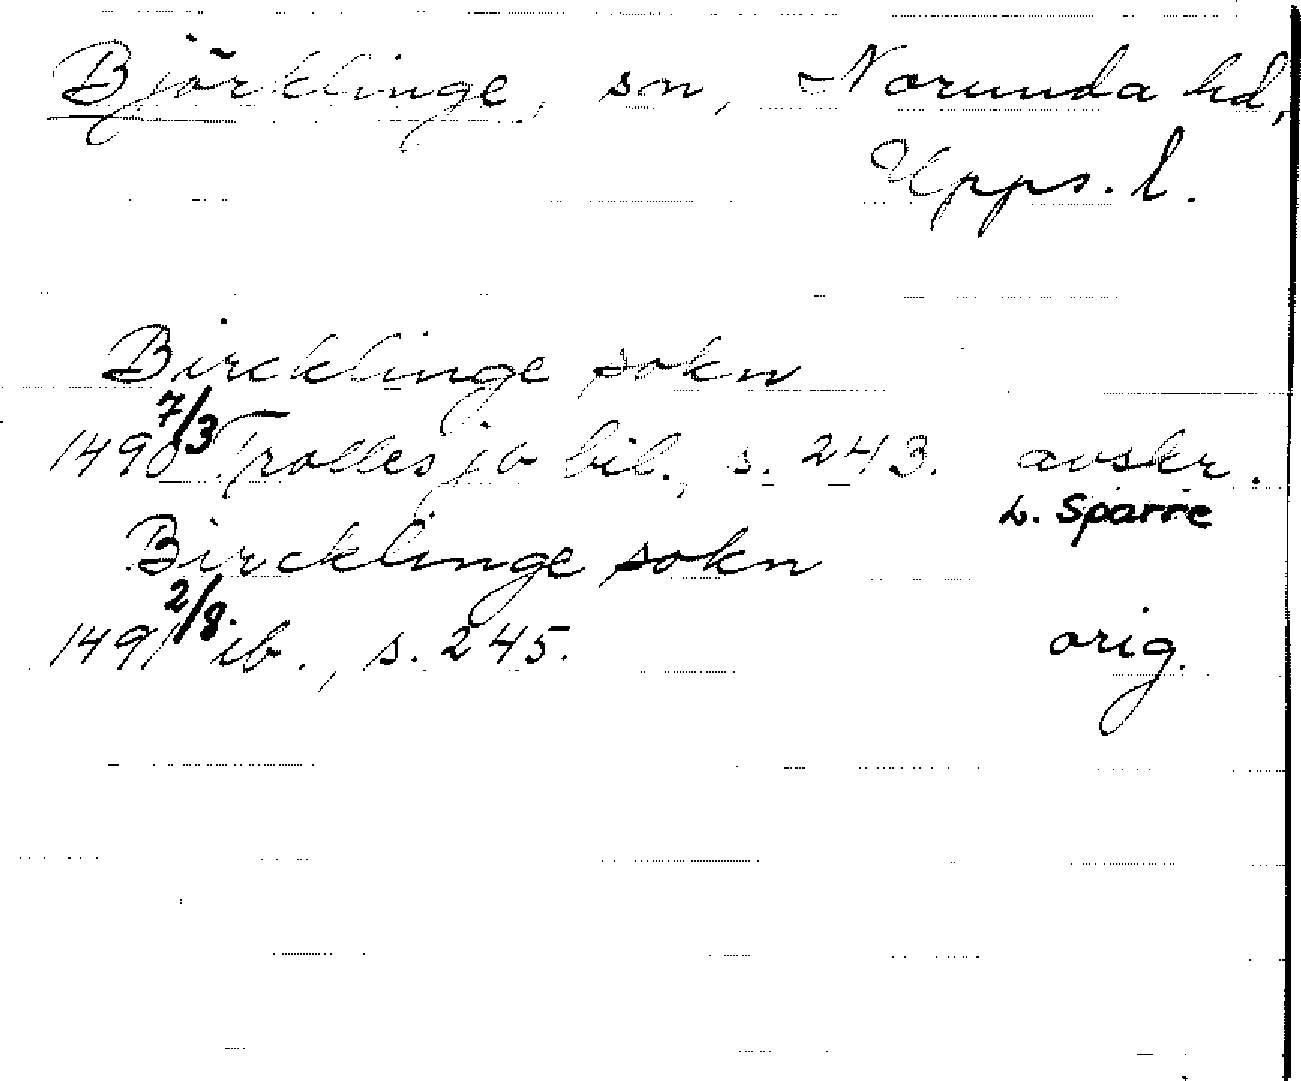 Björklinge, sn, Norunda hd,
Upps. l.
Bircklinge sokn
1490 7/3 Trollesjö bil., s. 243. avskr.
L. Sparre
Bircklinge sokn
1491 2/8. ib., s. 245. orig.